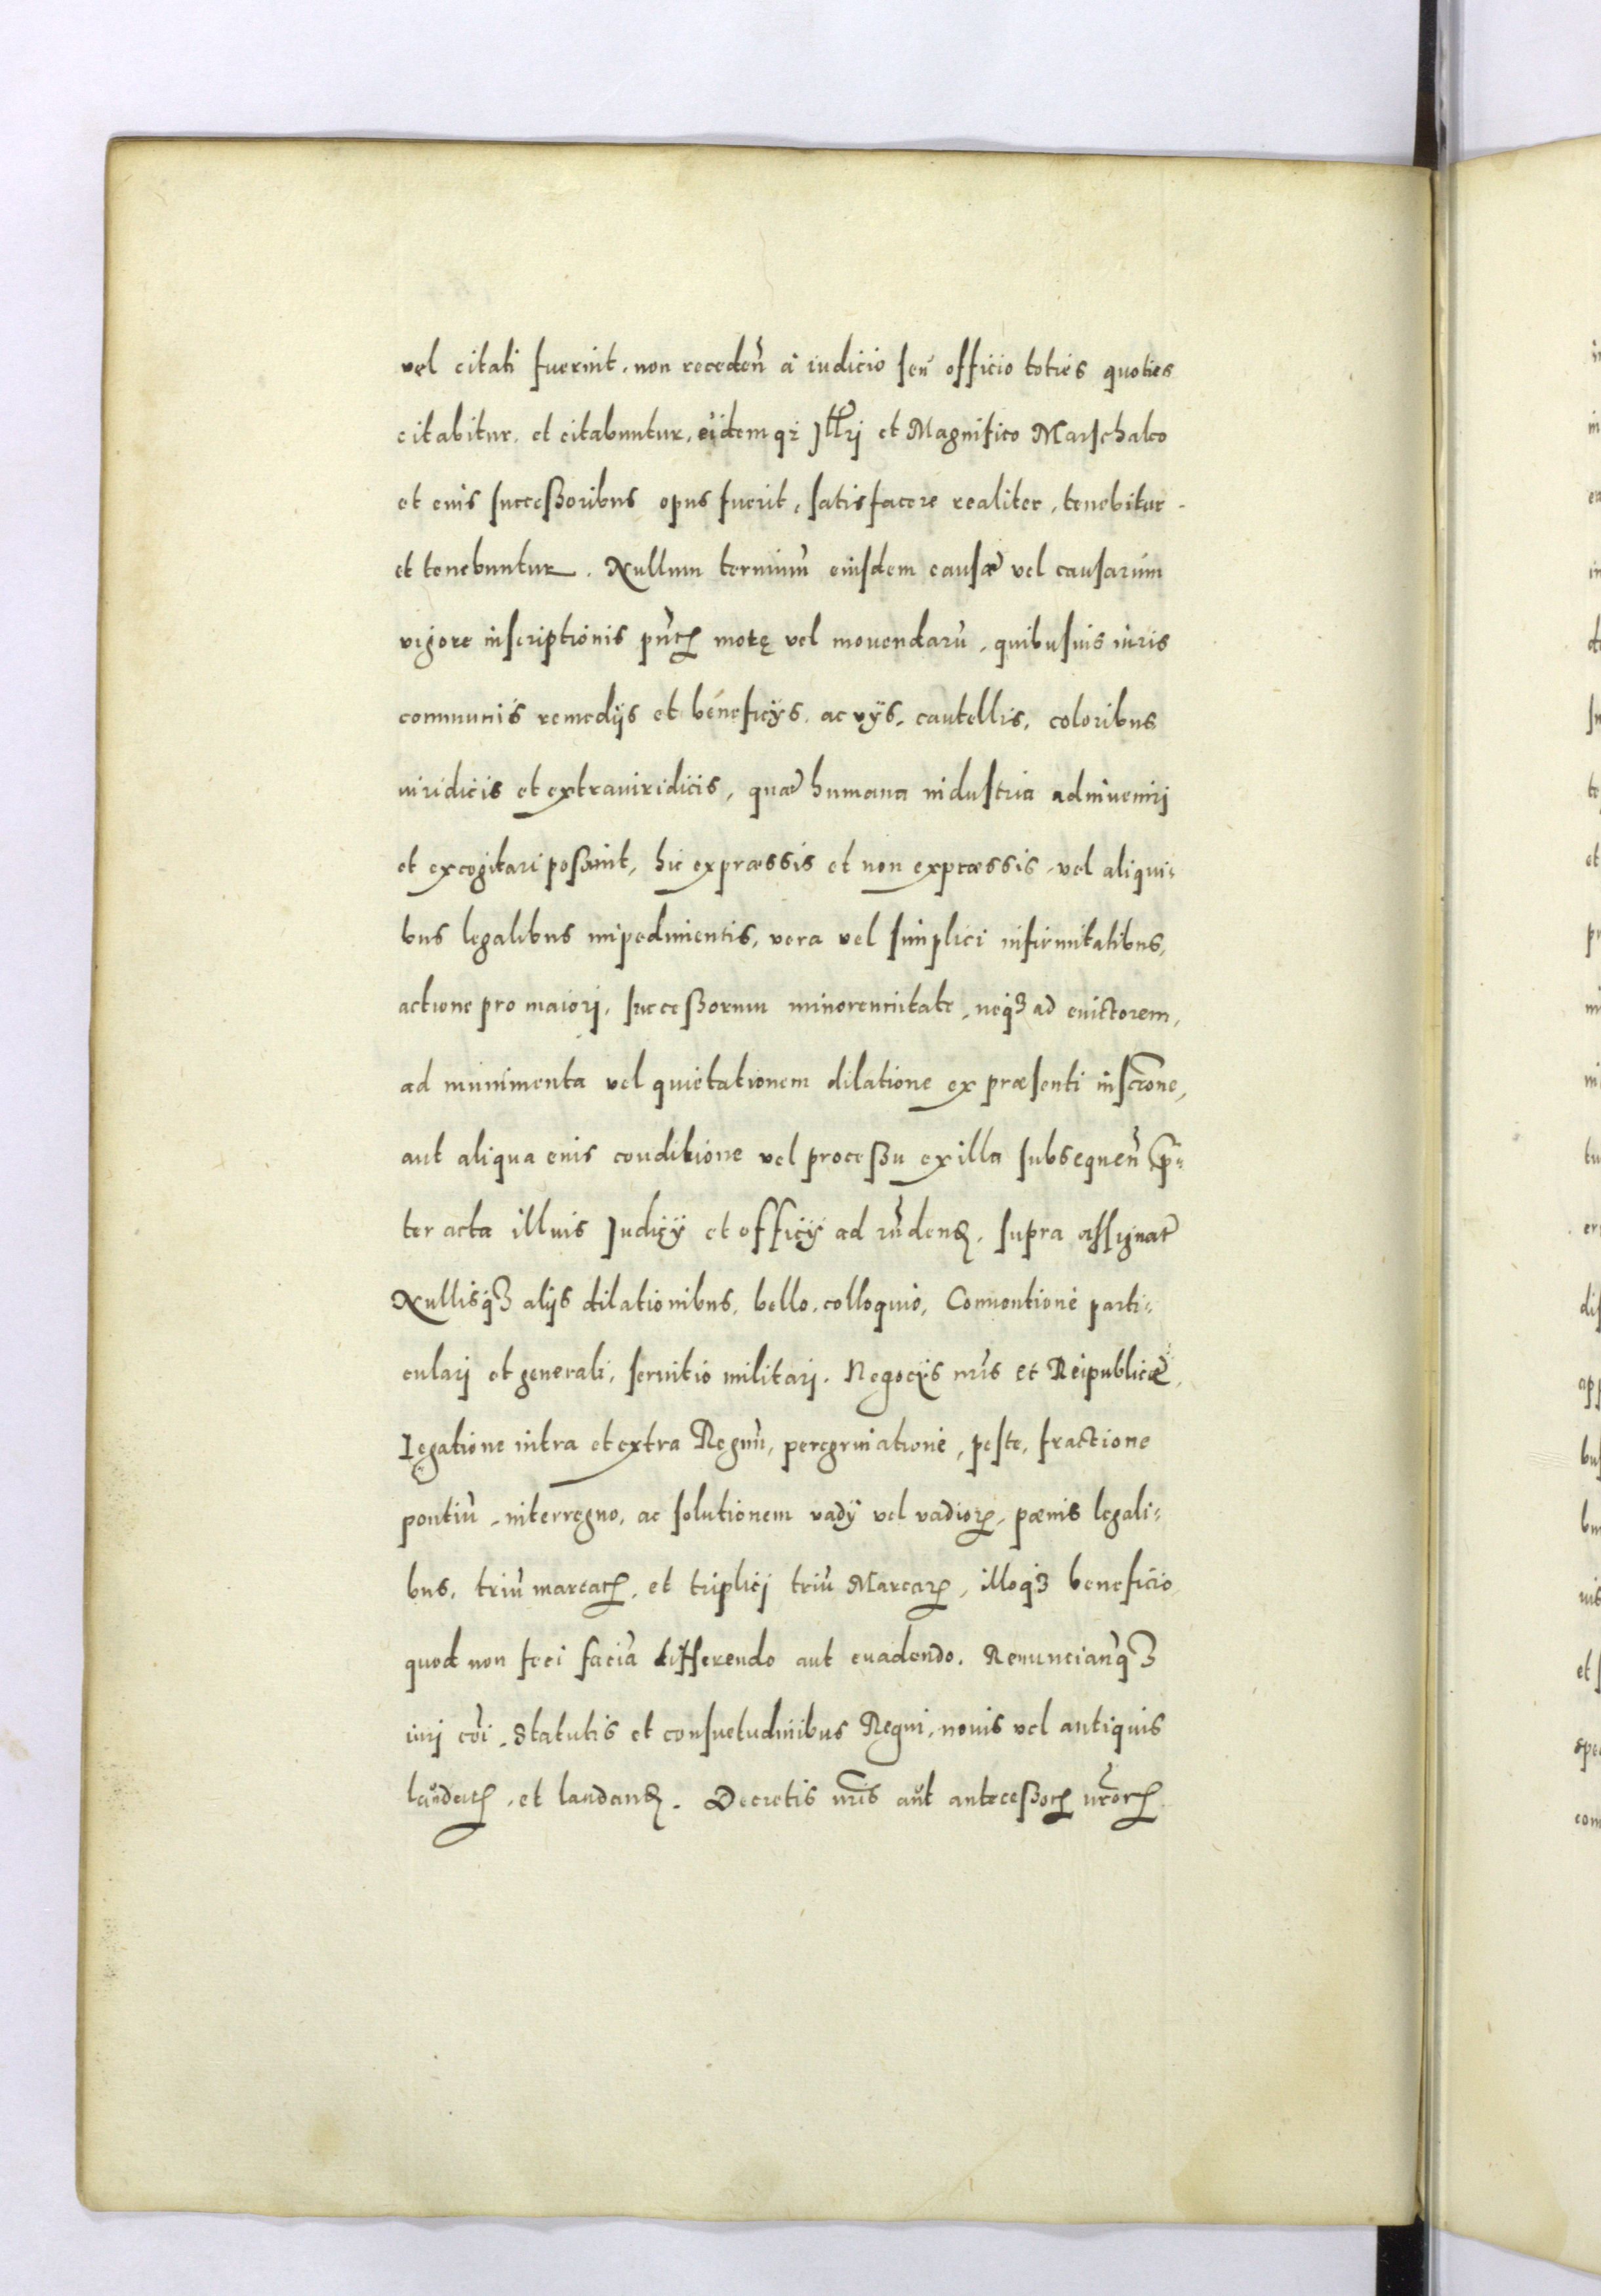 vel citati fuerint, non recedeñ á iudicio seu officio toties quoties
citabitur, et citabuntur, eidemqz Jllri et Magnifico Marschalco
et eius successoribus opus fuerit, satisfacere realiter, tenebitur
et tenebuntur. Nullum terminũ eiusdem causæ vel causarum
vigore inscriptionis pñtꝭ motę vel mouendarũ, quibusuis iuris
communis remedijs et beneficijs, ac vijs, cautellis, coloribus
iuridicis et extraiuridicis, quæ humana industria adinuenirj
et excogitari possunt, hic expraessis et non expraessis, vel aliqui:
bus legalibus impedimentis, vera vel simplici infirmitatibus,
actione pro maiorj, successorum minorennitate, neqꝫ ad euictorem,
ad munimenta vel quietationem dilatione ex præsenti inscrone,
aut aliqua eius conditione vel processu ex illa subsequeñ pp:
ter acta illius Judicÿ et officÿ ad rñdenꝭ, supra assignat
Nullisqꝫ alijs dilationibus, bello, colloquio, Conuentione parti:
cularj et generali, seruitio militarj, Negocijs nris et Reipublicæ,
Legatione intra et extra Regnũ, peregrinatione, peste, fractione
pontiũ, interregno, ac solutionem vadÿ vel vadioꝝ, pænis legali:
bus, triũ marcaꝝ, et triplicj triũ Marcaꝝ, illoqꝫ beneficio
quod non feci faciã differendo aut euadendo. Renuncianqꝫ
iurj cõi, Statutis et consuetudinibus Regni, nouis vel antiquis
laudatꝭ, et laudanꝭ. Decretis nris aut antecessoꝝ nroꝝ